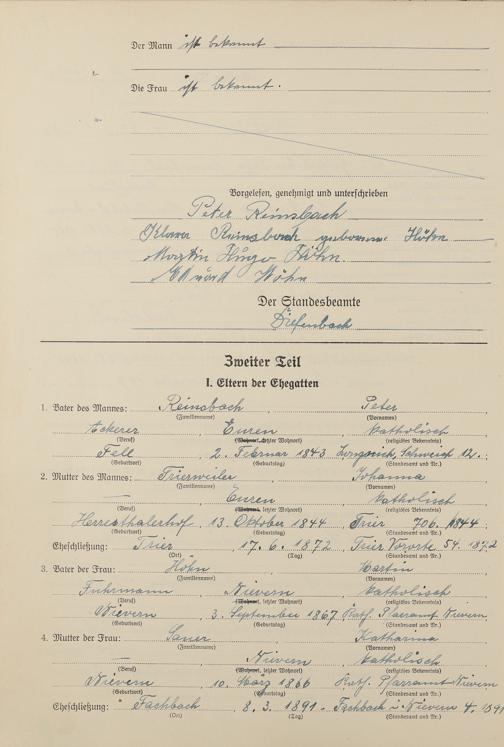 Der Mann ist bekannt
Die Frau ist bekannt.
Vorgelesen, genehmigt und unterschrieben
Peter Reinsbach
Klara Reinsbach geborene Höhn
Martin Hugo Höhn.
Eduard Höhn
Der Standesbeamte
Diefenbach
Zweiter Teil
I. Eltern der Ehegatten
1. Vater des Mannes: Reinsbach Peter
(Familienname) (Vornamen)
Ackerer Euren katholisch
(Beruf) (Wohnort, letzter Wohnort) (religiöses Bekenntnis)
Fell 2. Februar 1843 Longuich, Schweich 12.
(Geburtsort) (Geburtstag) (Standesamt und Nr.)
2. Mutter des Mannes: Trierweiler Johanna
(Familienname) (Vornamen)
— Euren katholisch
(Wohnort, letzter Wohnort) (religiöses Bekenntnis)
Herresthalerhof 13. Oktober 1844 Trier 706. 1844
(Geburtsort) (Geburtstag) (Standesamt und Nr.)
Eheschließung: Trier 17. 6. 1872 Trier Vororte 54. 1872
(Ort) (Tag) (Standesamt und Nr.)
3. Vater der Frau: Höhn Martin
(Familienname) (Vornamen)
Fuhrmann Nievern katholisch
(Beruf) (Wohnort, letzter Wohnort) (religiöses Bekenntnis)
Nievern 3. September 1867 Kath. Pfarramt Nievern
(Geburtsort) (Geburtstag) (Standesamt und Nr.)
4. Mutter der Frau: Sauer Katharina
(Familienname) (Vornamen)
— Nievern katholisch
(Beruf) (Wohnort, letzter Wohnort) (religiöses Bekenntnis)
Nievern 10. März 1866 Kath. Pfarramt Nievern
(Geburtsort) (Geburtstag) (Standesamt und Nr.)
Eheschließung: Fachbach 8. 3. 1891 Fachbach u. Nievern 4. 1891
(Ort) (Tag) (Standesamt und Nr.)